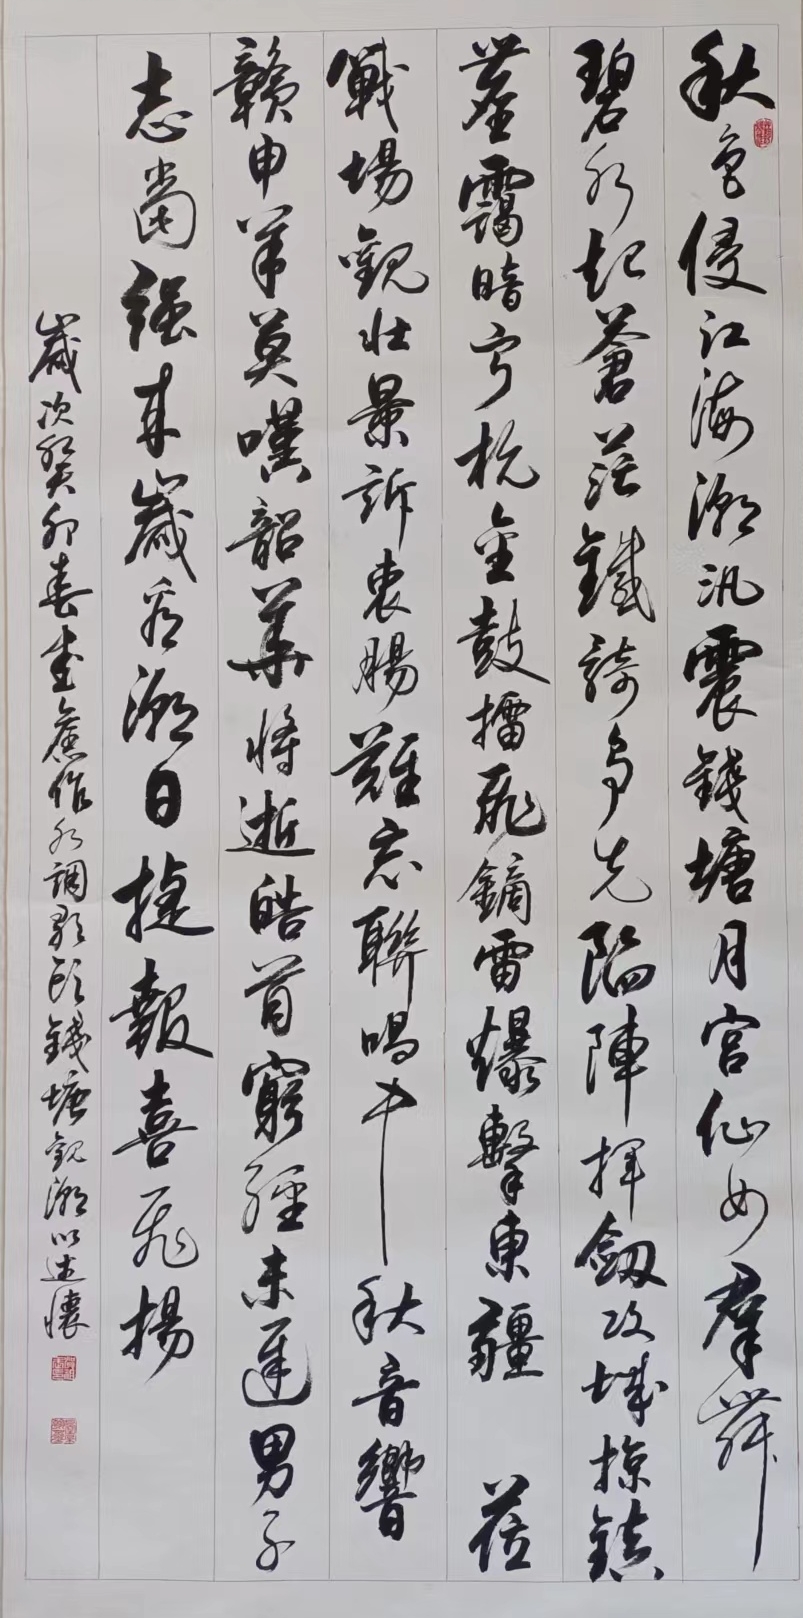 秋色侵江海潮汛震錢塘月宮仙女羣舞
碧水起蒼茫鐵騎爭先陷陣揮劍攻城掠鎮
塵靄暗穹杭金鼓擂飛鏑雷爆擊東疆 蒞
戰場觀壯景訴衷腸難忘聯唱中秋音響
贛申羊莫嘆韶華將逝皓首窮經未遲男子
志當強來歲看潮日捷報喜飛揚
歲次癸卯春書舊作水調歌頭錢塘觀潮以述懷